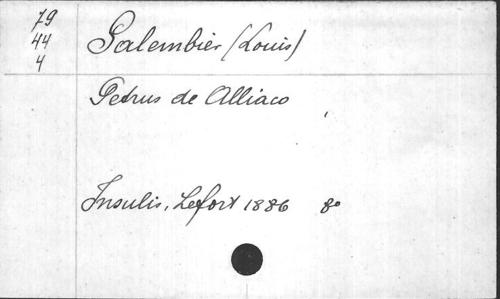 79
44
4
Salembier (Louis)
Petrus de Alliaco
Insulis, Lefort 1886 8°